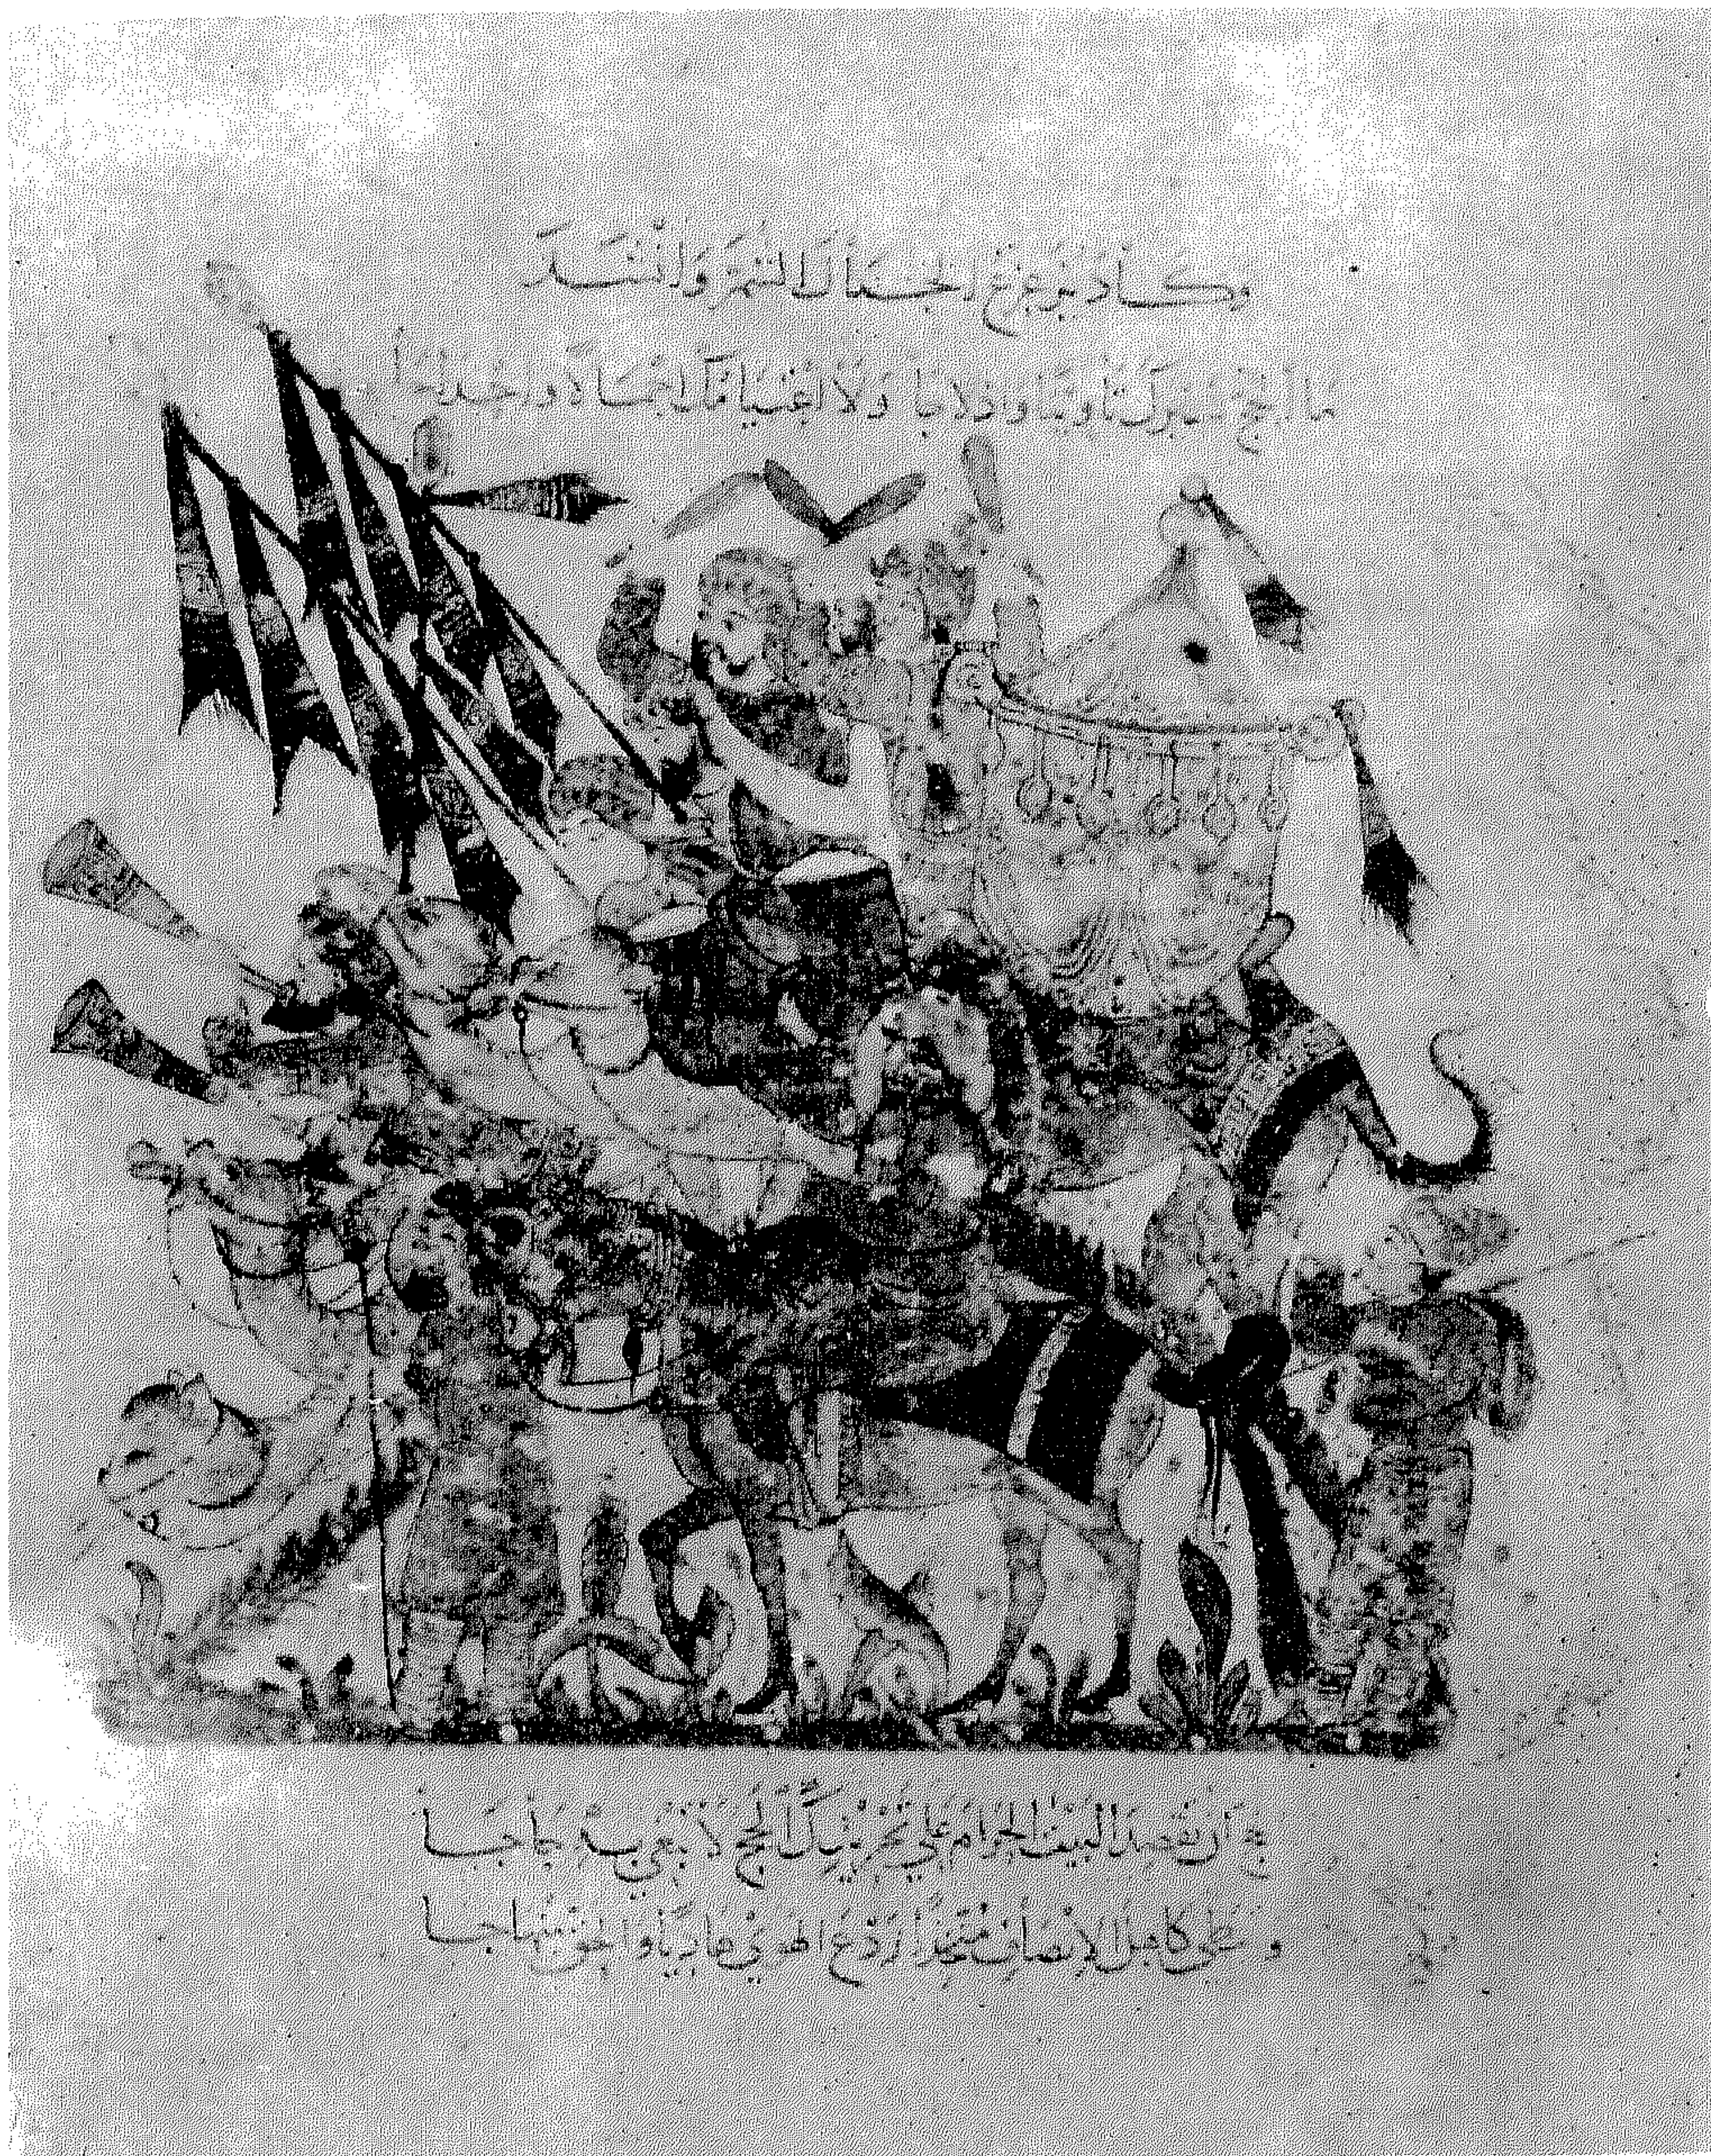 وكاد يزعزع الجبال الشم وانشد
ما الحج سيرك تاويبا وادلاجا ولا اعتيامك اجمالا واحداجا
الحج ان تقصد البيت الحرام على تجريدك الحج لا تبغي به حاجا
وتمتطي كاهل الانصاف متخذا ردع الهوى هاديا والحق منهاجا